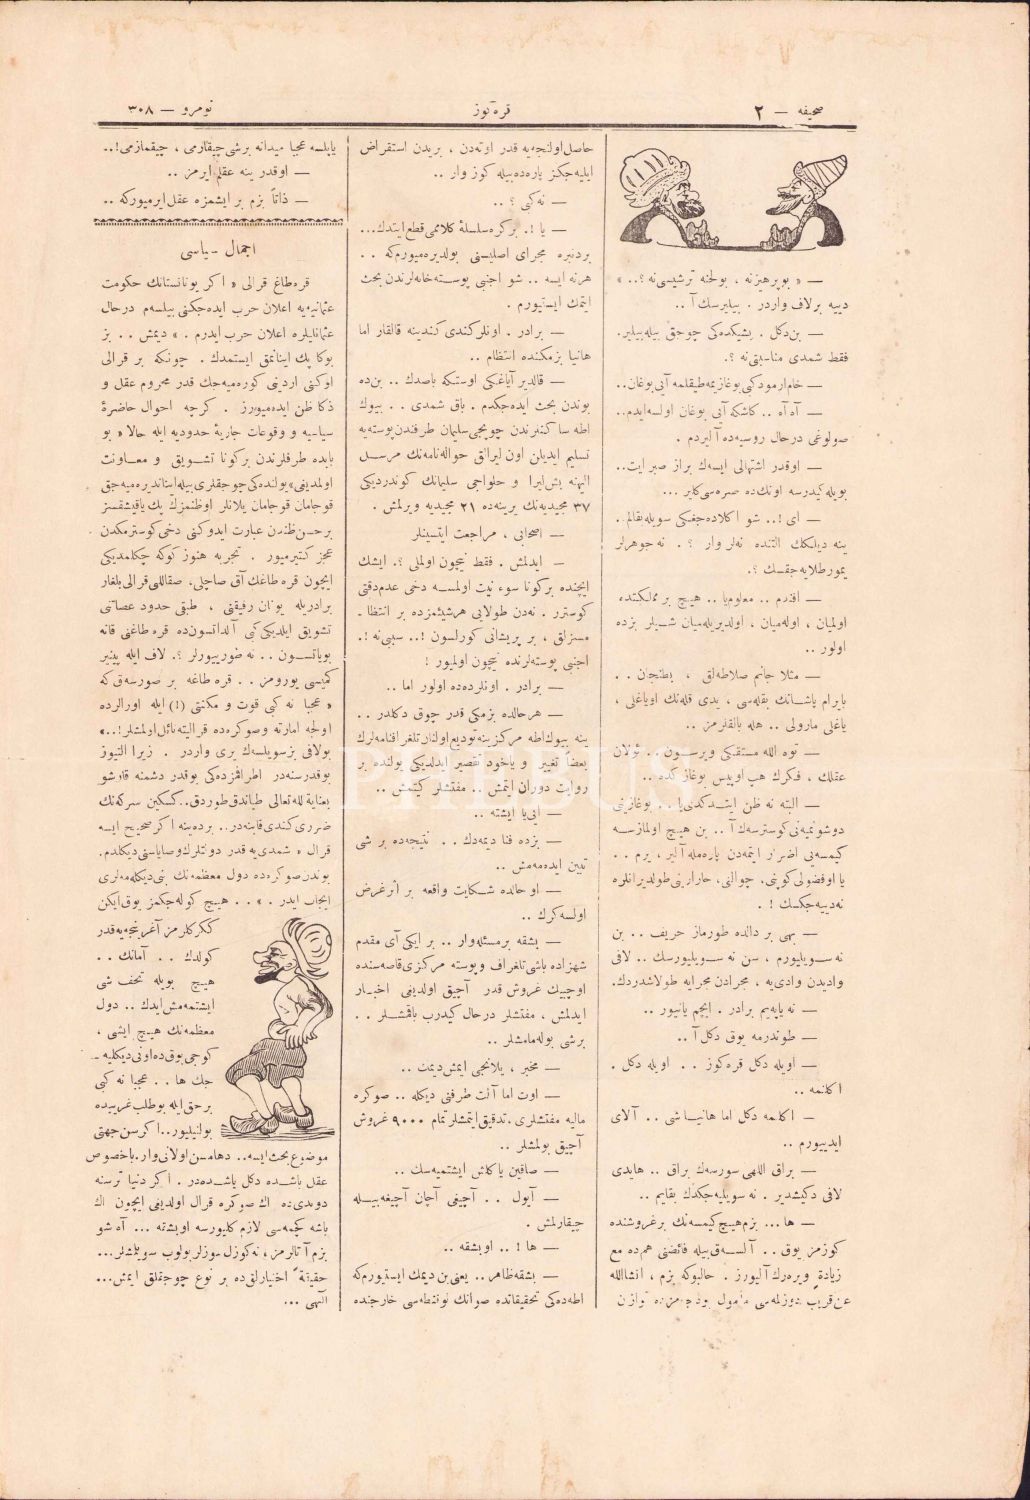 صحیفه — ٢
قره‌گوز
نومرو — ٣٠٨
— « بو پرهیز نه ، بو لحنه ترشیسی نه ؟.. »
دییه بر لاف واردر . بیلیرسك آ ..
— بن دكل . بشیكده‌كی چوجق بیله بیلیر.
فقط شمدی مناسبتی نه ؟.
— خام آرمود كبی بوغازیمه طیقلمه آیی بوغان..
— آه آه .. كاشكه آیی بوغان اولسه ایدم..
صولوغی درحال روسیه‌ده آلیردم .
— اوقدر اشتهالی ایسه‌ك براز صبر ایت..
بویله كیدرسه اونك ده صره‌سی كلیر ...
— ای !.. شو اكلاده‌جغكی سویله بقالم..
ینه دیلكك آلتنده نه‌لر وار ؟ . نه جوهرلر
یمورطلایه‌جقسك ؟.
— افندم .. معلوم یا .. هیچ بر مملكتده
اولمیان ، اوله‌میان ، اولدیریله‌میان شیلر بزده
اولور ..
— مثلا جانم صلاطه‌لق ، پطلجان ..
بایرام پاشانك بقله‌سی ، یدی قله‌نك اویاغلی ،
یاغلی مارولی .. هله بالقلرمز ..
— توه الله مستحقكی ویرسون .. ئولان
عقلك ، فكرك هپ اوپیس بوغازكده ..
— البته نه ظن ایتدكدی یا .. بوغازینی
دوشونمیه‌نی كوسترسه‌ك آ .. بن هیچ اولمازسه
كیمسه‌یی اضرار ایتمه‌دن پاره‌مله آلیر ، یرم ..
یا اوفضولی كوپنی، چوالنی، خارارینی طولدیرانلره
نه دییه‌جكسك ! .
— بهی بر دالده طورماز حریف .. بن
نه سویلیورم ، سن نه سویلیورسك .. لافی
وادیدن وادی‌یه ، مجرادن مجرایه طولاشدردك.
— نه یاپه‌یم برادر . ایچم یانیور ..
— طوندرمه یوق دكل آ ..
— اویله دكل قره‌كوز . . اویله دكل .
اكلنمه ..
— اكلنمه دكل اما هانیا شی .. آلای
ایدییورم ..
— براق اللهی سورسه‌ك براق .. هایدی
لافی دكیشدیر . نه سویلیه‌جكدك بقایم ..
— ها ... بزم هیچ كیمسه‌نك بر غروشنده
كوزمز یوق .. آلسه‌ق بیله فائضنی هم ده مع
زیادة ویره‌رك آلیورز . حالبوكه بزم ، انشاالله
عن قریب دوزلمه‌سی مأمول بودجه‌مزده توازن
حاصل اولنجه‌یه قدر اوته‌دن ، بریدن استقراض
ایلیه‌جكز پاره‌ده بیله كوز وار ..
— نه كی ؟ ..
— یا !. بر كره سلسلۀ كلاممی قطع ایتدك...
بردنبره مجرای اصلیسنی بولدیره‌میورم كه ..
هرنه ایسه .. شو اجنبی پوسته‌خانه‌لرندن بحث
ایتمك ایستیورم .
— برادر . اونلر كندی كندینه قالقار اما
هانیا بزمكنده انتظام ..
— قالدیر آیاغكی اوستكه باصدك .. بن ده
بوندن بحث ایده‌جكدم . باق شمدی .. بیوك
اطه ساكنلرندن چوپچی سلیمان طرفندن پوسته‌یه
تسلیم ایدیلن اون لیرالق حواله‌نامه‌نك مرسل
الیهنه بش لیرا و حلواجی سلیمانك كوندردیكی
٣٧ مجیدیه‌نك یرینه‌ده ٢١ مجیدیه ویرلمش .
— اصحابی ، مراجعت ایتسینلر
— ایدلمش . فقط نیچون اولملی ؟. ایشك
ایچنده بر كونا سوء نیت اولمسه دخی عدم دقتی
كوسترر . نه‌دن طولایی هر شیئمزده بر انتظا-
مسزلق ، بر پریشانی كورلسون !.. سببی نه !.
اجنبی پوسته‌لرنده نیچون اولمیور !
— برادر . اونلرده‌ده اولور اما ..
— هر حالده بزمكی قدر چوق دكلدر ..
ینه بیوك اطه مركزینه تودیع اولنان تلغرافنامه‌لرك
بعضاً تغییر و یاخود تقصیر ایدلدیكی یولنده بر
روایت دوران ایتمش .. مفتشلر كیتمش ..
— ایی یا ایشته ..
— بزده فنا دیمه‌دك .. نتیجه‌ده بر شی
تبین ایده‌مه‌مش ..
— او حالده شكایت واقعه بر اثر غرض
اولسه كرك ..
— بشقه بر مسئله وار .. بر ایكی آی مقدم
شهزاده باشی تلغراف و پوسته مركزی قاصه‌سنده
اوچ بیك غروش قدر آچیق اولدیغی اخبار
ایدلمش ، مفتشلر درحال كیدرب باقمشلر ..
بر شی بوله‌مامشلر ..
— مخبر ، یلانجی ایمش دیمت ..
— اوت اما آلت طرفنی دیكله .. صوكره
مالیه مفتشلری ، تدقیق ایتمشلر تمام ٩٠٠٠ غروش
آچیق بولمشلر ..
— صاقین یاكلش ایشتمیه‌سك ..
— آیول .. آچیغی آچان آچیغه بیله
چیقارلمش .
— ها !.. او بشقه ..
— بشقه ظاهر .. یعنی بن دیمك ایستیورم كه
اطه‌ده‌كی تحقیقاتده صوانك لونقطه‌سی خارجنده
یاپلسه عجبا میدانه بر شی چیقارمی ، چیقمازمی!..
— اوقدر ینه عقلم ایرمز ..
— ذاتاً بزم بر ایشمزه عقل ایرمیور كه ..
اجمال سیاسی
قره‌طاغ قرالی « اكر یونانستانك حكومت
عثمانیه‌یه اعلان حرب ایده‌جكنی بیلسه‌م درحال
عثمانلیلره اعلان حرب ایدرم . » دیمش .. بز
بوكا پك اینانمق ایستمدك . چونكه بر قرالی
اوكنی اردینی كوره‌میه‌جك قدر محروم عقل و
ذكا ظن ایده‌میورز . كرچه احوال حاضرۀ
سیاسیه و وقوعات جاریۀ حدودیه ایله حالا « بو
بابده طرفلرندن بر كونا تشویق و معاونت
اولمدیغی » یولنده‌كی چوجقلری بیله اینانديره‌میه‌جق
قوجامان قوجامان یلانلر اوطنمزك پك یاقیشقسز
بر حسن ظندن عبارت ایدوكنی دخی كوسترمكدن
عجز كتیرمیور . تجربه هنوز كوكه چكلمدیكی
ایچون قره طاغك آق صاچلی، صقاللی قرالی بلغار
برادریله یونان رفیقنی ، طبقی حدود عصاتنی
تشویق ایلدیكی كبی آلداتسون ده قره طاغنی قانه
بویاتسون .. نه ضورییورلر ؟. لاف ایله پینیر
كمیسی یورومز .. قره طاغه بر صورسه‌ق كه
« عجبا نه كبی قوت و مكنتی (!) ایله اورالرده
اولجه امارته و صوكره‌ده قرالیته نائل اولمشلر!..»
بولافی بز سویلسه‌ك یری واردر . زیرا التیوز
بوقدر سنه‌در اطرافزده‌كی بوقدر دشمنه قارشو
بعنایة لله تعالی طیاندق طوردق.. كسكین سركه‌نك
ضرری كندی قابنه‌در.. بر ده ینه اكر صحیح ایسه
قرال « شمدی‌یه قدر دولتلرك وصایاسنی دیكلدم.
بوندن صوكره‌ده دول معظمه‌نك بنی دیكله‌مه‌لری
ایجاب ایدر . » .. هیچ كوله‌جكمز یوق ایكن
كككلرمز آغرینجه‌یه قدر
كولدك .. آمانك ..
هیچ بویله تحف شی
ایشتمه‌مش ایدك .. دول
معظمه‌نك هیچ ایشی ،
كوجی یوق ده اونی دیكلیه-
جك ها .. عجبا نه كبی
بر حق ایله بو طلب غریبده
بولنیلیور.. اكر سن جهتی
موضوع بحث ایسه.. دها مسن اولانی وار. باخصوص
عقل یاشده دكل باشده‌در . اكر دنیا ترسنه
دوندی‌ده اك صوكره قرال اولدیغی ایچون اك
باشه كچمه‌سی لازم كلیورسه او بشقه ... آه شو
بزم آتالرمز ، نه كوزل سوزلر بولوب سویلمشلر...
حقیقةً اختیارلق ده بر نوع چوجقلق ایمش...
آلهی ...
PHEBUS